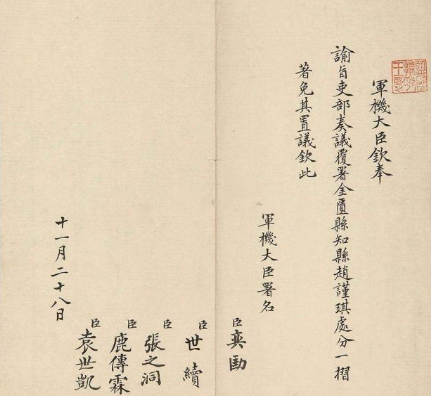 軍機大臣欽奉
諭旨吏部奏議覆署全匱縣知縣趙謹琪處分一摺
著免其置議欽此
軍機大臣署名
臣奕劻
臣世續
臣張之洞
臣鹿傳霖
臣袁世凱
十一月二十八日